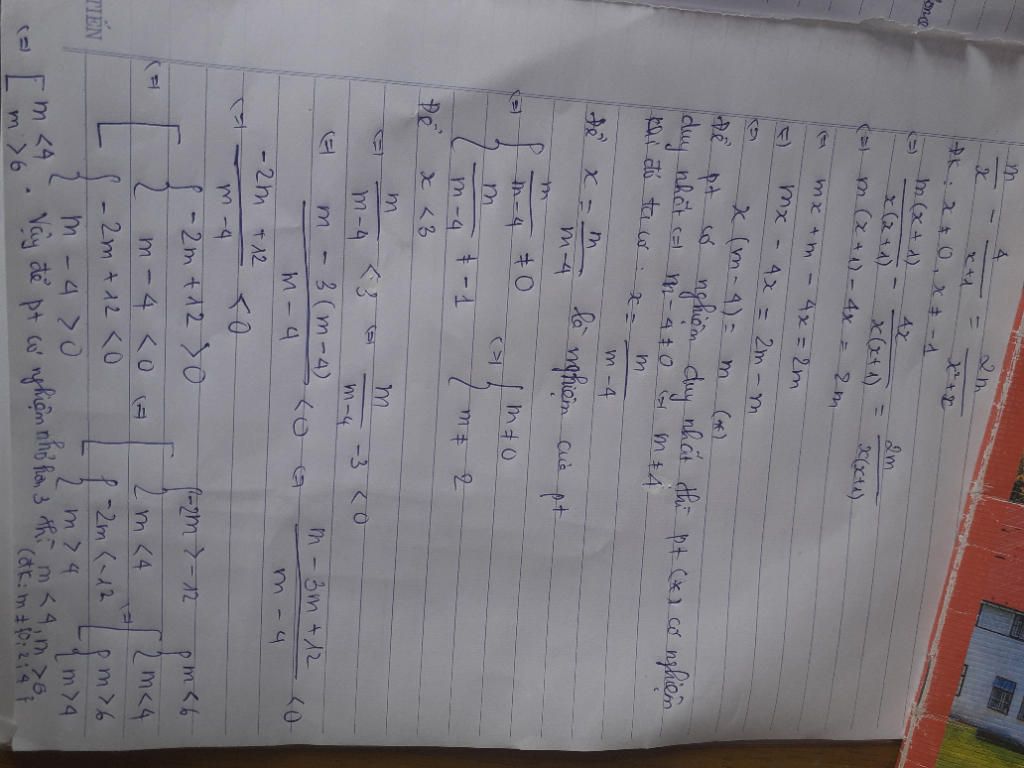 m/x - 4/(x+1) = 2m/(x²+x)
ĐK: x ≠ 0, x ≠ -1
(=) m(x+1)/x(x+1) - 4x/x(x+1) = 2m/x(x+1)
(=) m(x+1) - 4x = 2m
(=) mx + m - 4x = 2m
(=) mx - 4x = 2m - m
(=) x(m-4) = m (*)
Để pt có nghiệm duy nhất thì pt (*) có nghiệm
duy nhất (=) m-4 ≠ 0 (=) m ≠ 4
Khi đó ta có: x = m/(m-4)
Để x = m/(m-4) là nghiệm của pt
(=) { m/(m-4) ≠ 0 ; m/(m-4) ≠ -1 (=) { m ≠ 0 ; m ≠ 2
Để x < 3
(=) m/(m-4) < 3 (=) m/(m-4) - 3 < 0
(=) (m - 3(m-4))/(m-4) < 0 (=) (m - 3m + 12)/(m-4) < 0
(=) (-2m + 12)/(m-4) < 0
(=) [ { -2m + 12 > 0 ; m - 4 < 0 ; { -2m + 12 < 0 ; m - 4 > 0 (=) [ { -2m > -12 ; m < 4 ; { -2m < -12 ; m > 4 (=) [ { m < 6 ; m < 4 ; { m > 6 ; m > 4
(=) [ m < 4 ; m > 6 . Vậy để pt có nghiệm nhỏ hơn 3 thì m < 4, m > 6
(ĐK: m ≠ {0; 2; 4}
TIẾN